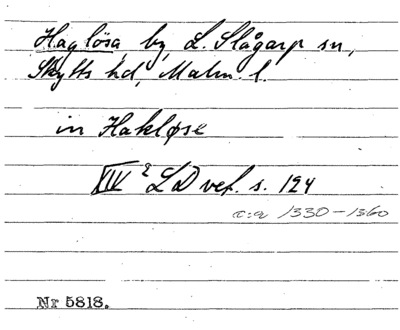 Haglösa by, L. Slågarp sn,
Skytts hd, Malm. l.
in Hakløse
XIV 2 LD vef. s. 124
c:a 1330–1360
Nr 5818.